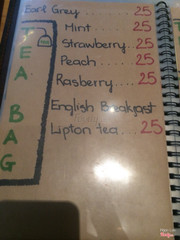 Earl Grey ...... 25
Mint ..... 25
Strawberry... 25
Peach .... 25
Rasberry.... 25
English Breakfast
Lipton tea... 25
TEA BAG